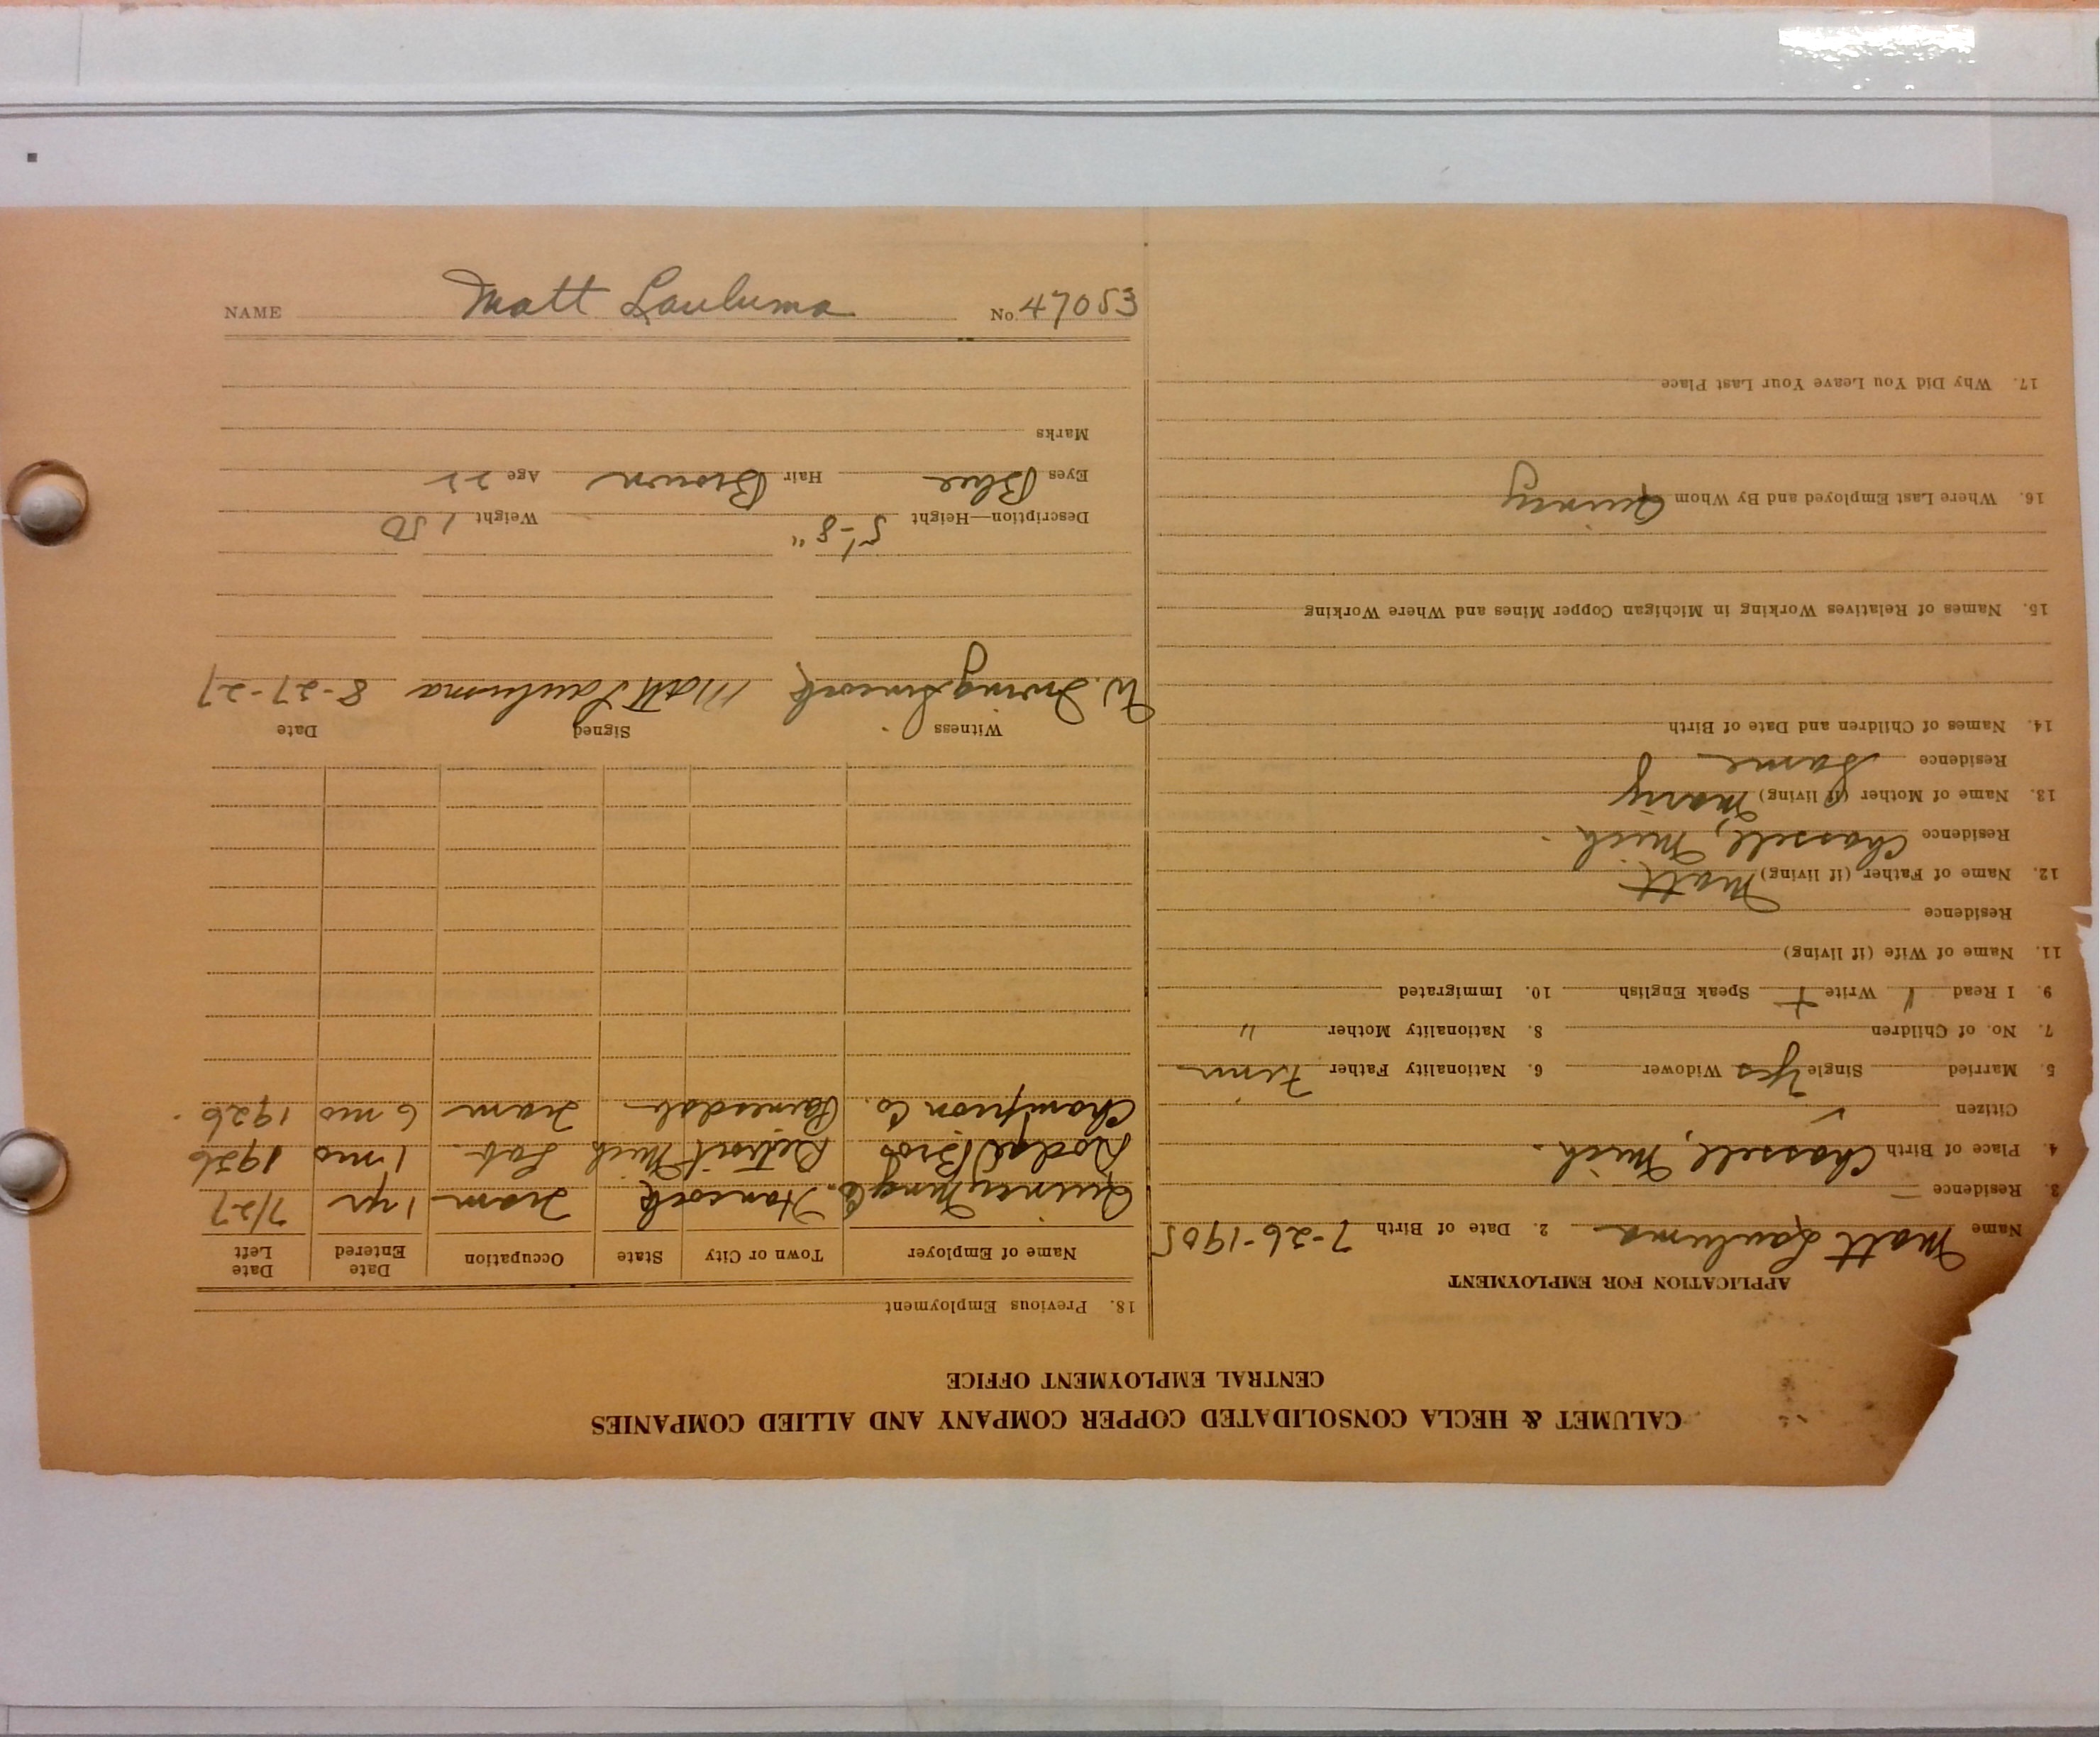 CALUMET & HECLA CONSOLIDATED COPPER COMPANY AND ALLIED COMPANIES
CENTRAL EMPLOYMENT OFFICE
APPLICATION FOR EMPLOYMENT
Name Matt Lauluma 2. Date of Birth 7-26-1905
3. Residence
4. Place of Birth Chassell, Mich.
Citizen ✓
5. Married Single Yes Widower 6. Nationality Father Finn
7. No. of Children 8. Nationality Mother "
9. I Read Write Speak English 10. Immigrated
11. Name of Wife (if living)
Residence
12. Name of Father (if living) Matt
Residence Chassell, Mich.
13. Name of Mother (if living) Mary
Residence Same
14. Names of Children and Date of Birth
15. Names of Relatives Working in Michigan Copper Mines and Where Working
16. Where Last Employed and By Whom Quincy
17. Why Did You Leave Your Last Place
18. Previous Employment
Name of Employer Town or City State Occupation Date Entered Date Left
Quincy Mng Co. Hancock Tram 1 yr 7/27
Dodge Bros Detroit Mich Lab. 1 mo 1926
Champion Co. Painesdale Tram 6 mo 1926.
Witness Signed Date
W. Irving Matt Lauluma 8-27-27
Description—Height 5'-8" Weight 150
Eyes Blue Hair Brown Age 22
Marks
NAME Matt Lauluma No. 47053